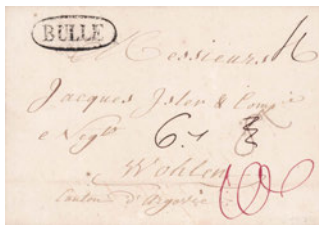 BULLE
Messieurs
Jacques Isler & Comp.ie
e Negts
6.1
Wohlen
Canton d'Argovie